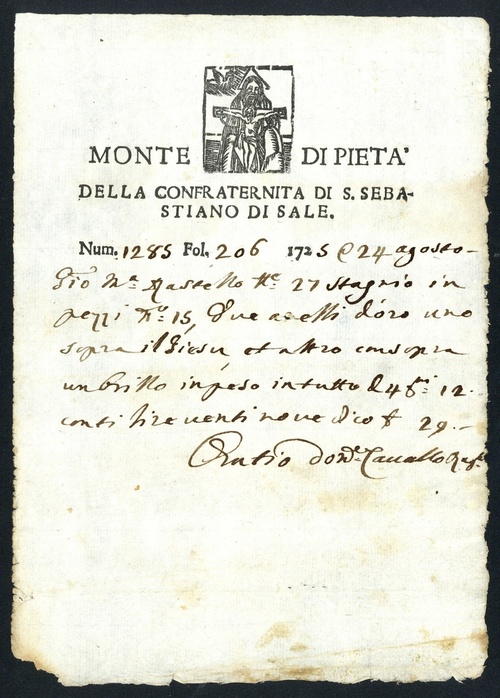 MONTE DI PIETA'
DELLA CONFRATERNITA DI S. SEBA-
STIANO DI SALE.
Num. 1285 Fol. 206 1725 @ 24 agosto
Gio Ma. Rastello 27 stagno in
pezzi No. 15, due anelli d'oro uno
sopra il Giesu et altro con sopra
un brillo in peso in tutto 4 12.
conti lire venti nove dico £ 29.-
Oratio Cavallo